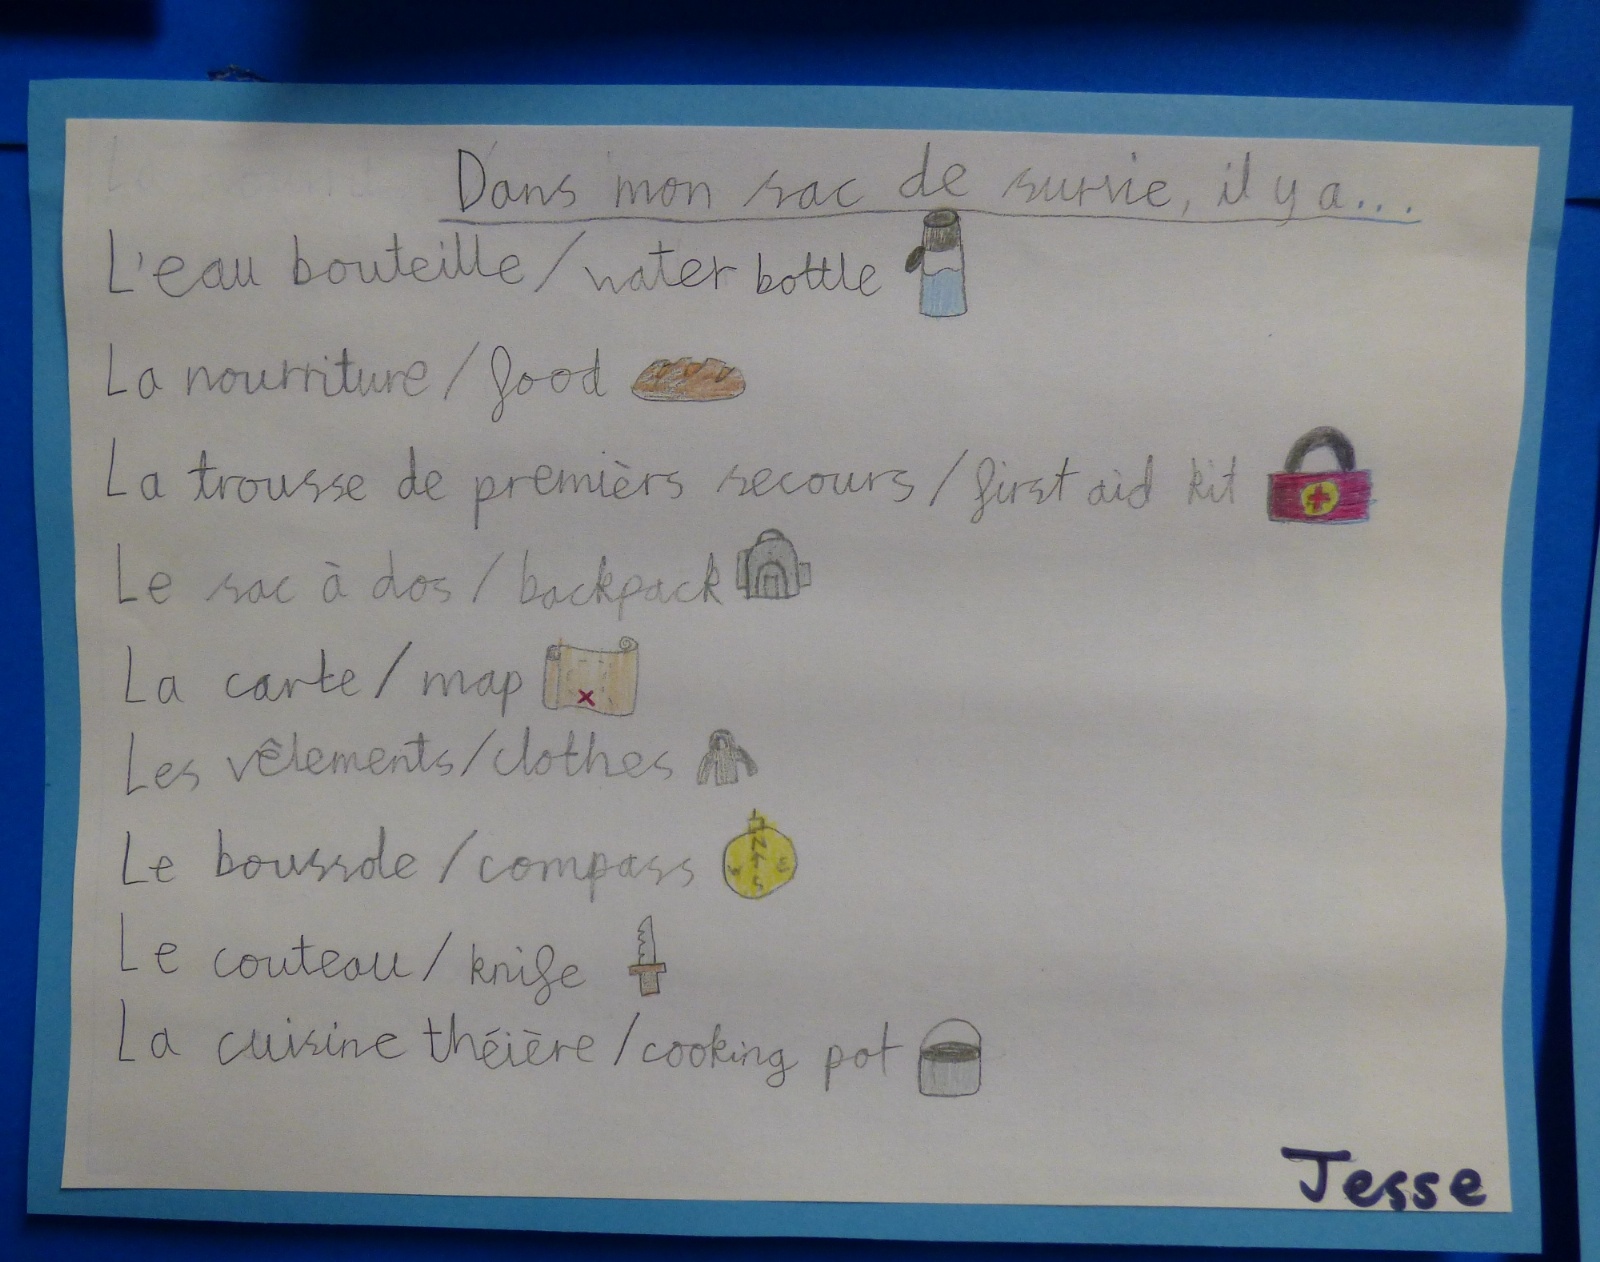 Dans mon sac de survie, il y a...
L'eau bouteille/water bottle
La nourriture/food
La trousse de premièrs secours/first aid kit
Le sac à dos/backpack
La carte/map
Les vêlements/clothes
Le boussole/compass
N
W E
S
Le couteau/knife
La cuisine théière/cooking pot
Jesse